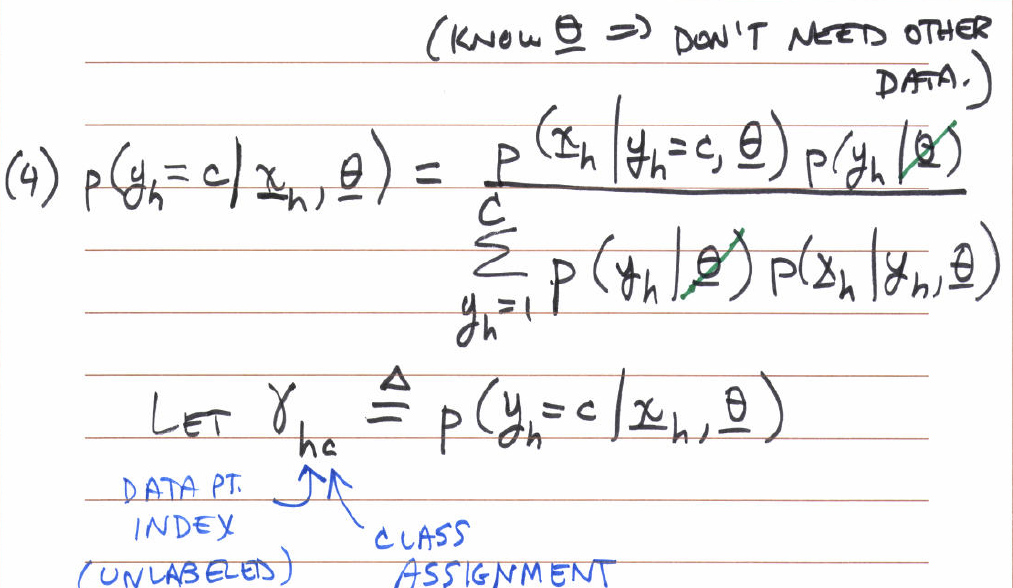 (KNOW θ ⇒ DON'T NEED OTHER
DATA.)
(4) p(y_h = c | x_h, θ) = p(x_h | y_h = c, θ) p(y_h | θ)
C
Σ p(y_h | θ) p(x_h | y_h, θ)
y_h = 1
LET γ_hc ≜ p(y_h = c | x_h, θ)
DATA PT.
INDEX
(UNLABELED)
CLASS
ASSIGNMENT